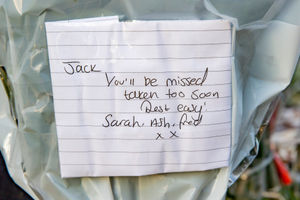 Jack
You'll be missed
taken too soon
Rest easy
Sarah, Ash, Fred
x x